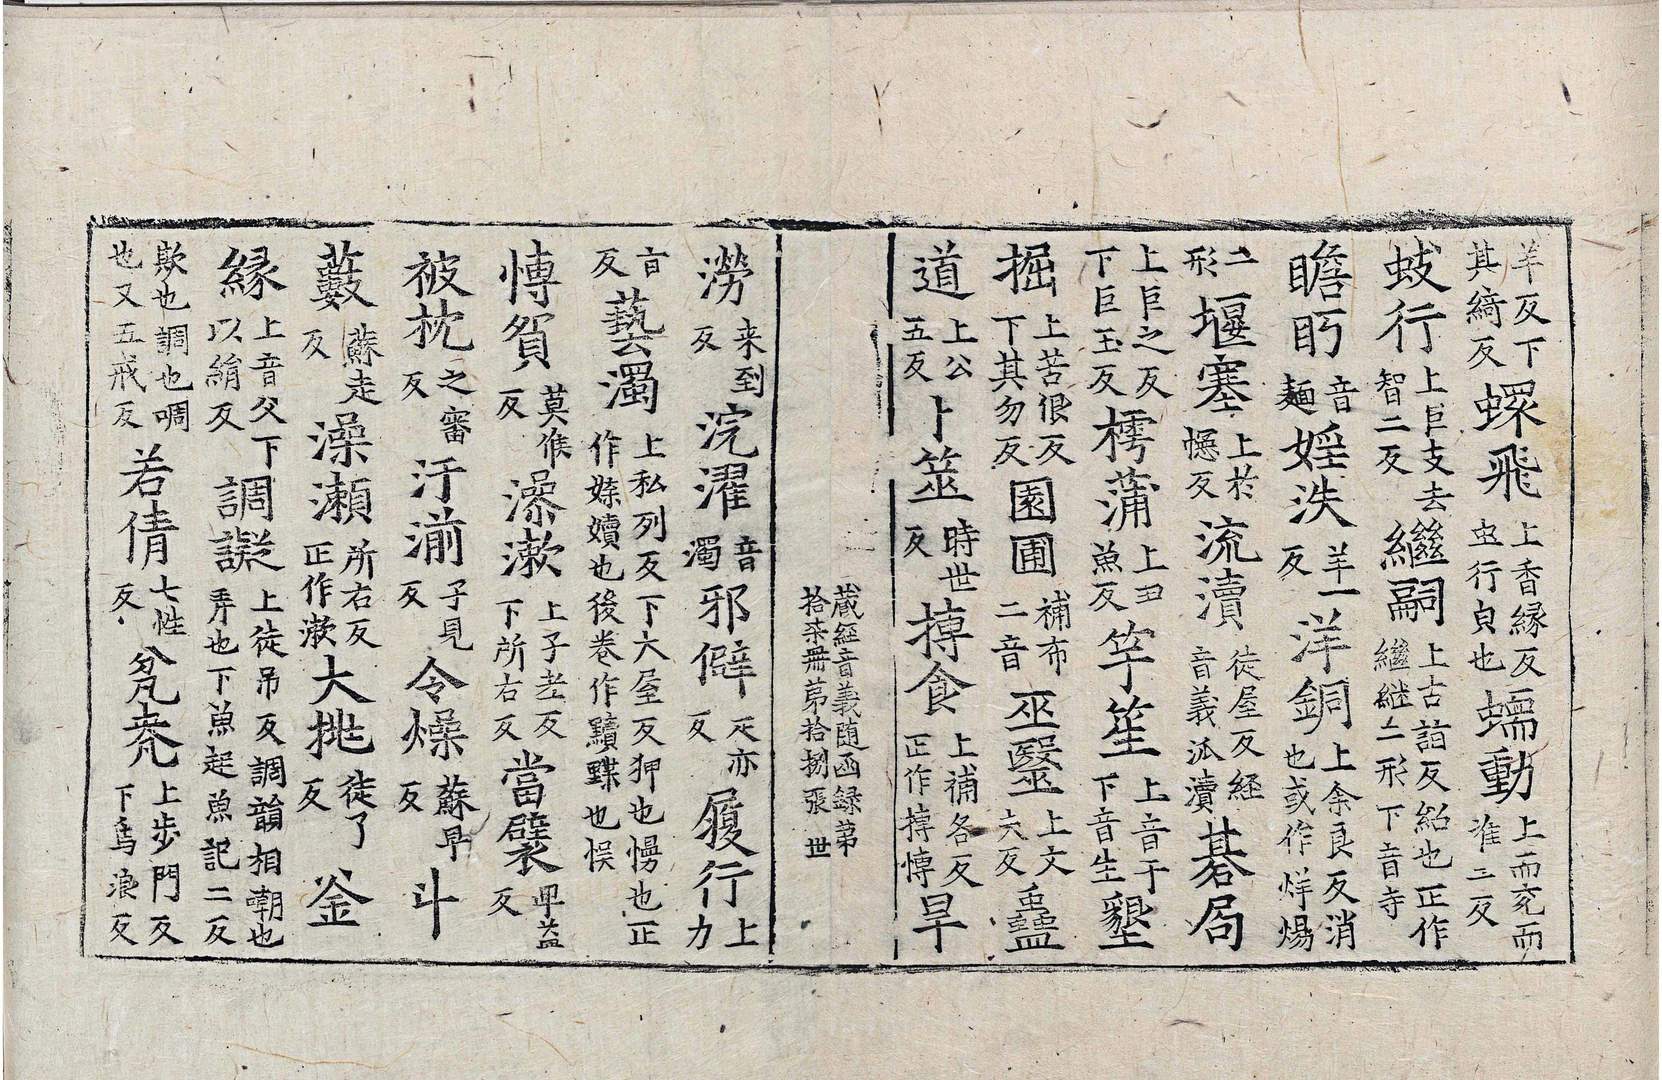 羊反下其綺反蜾飛上香緣反虫行皃也蠕動上而兖而准二反
蚑行上巨支去智二反繼嗣上古詣反紹也正作繼継二形下音寺
瞻眄音麺婬泆羊一反洋銅上余良反消也或作烊煬
二形堰塞上於憾反流瀆徒屋反經音義泒瀆碁局
上巨之反下巨玉反樗蒲上丑魚反竽笙上音于下音生墾
掘上苦很反下其勿反園圃補布二音巫毉上文夫反蠱
道上公五反卜筮時世反摶食上補各反正作摶愽旱
藏經音義随函録第拾柒冊第拾捌張 世
澇来到反浣濯音濁邪僻疋亦反履行上力
音反藝濁上私列反下大屋反狎也慢也正作媟嬻也後卷作黷䵟也悮
愽貿莫候反澡漱上子老反下所右反當襞卑益反
被枕之審反汙湔子見反令燥蘇早反斗
藪蘇走反澡瀬所右反正作漱大挑徒了反釡
縁上音父下以絹反調譺上徒吊反調韻相嘲也弄也下魚起魚記二反
欺也調也啁也又五戒反若倩七性反瓫㼜上步門反下烏浪反